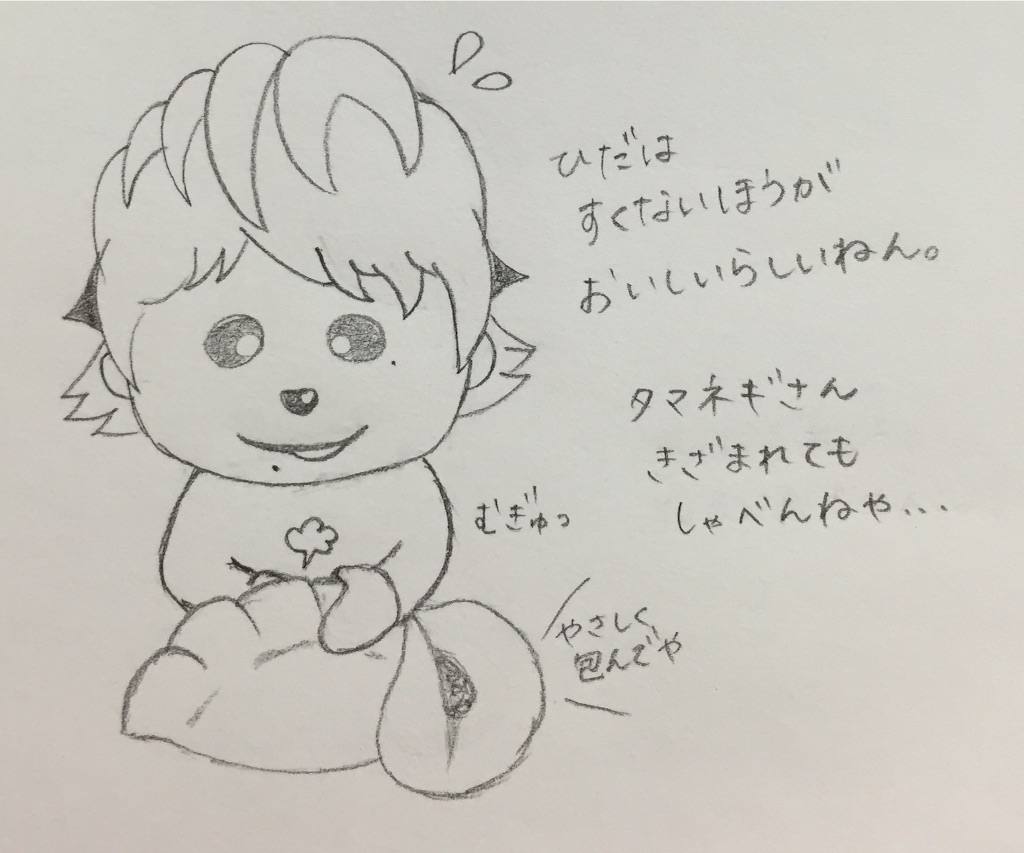 ひだは
すくないほうが
おいしいらしいねん。
タマネギさん
きざまれても
しゃべんねや...
むぎゅっ
やさしく
包んでや